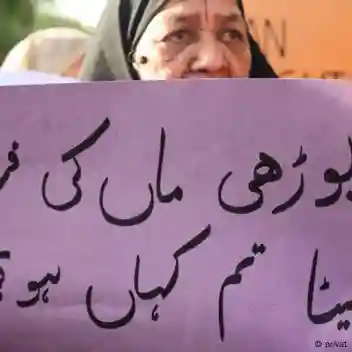 AN
بوڑھی ماں کی فر
بیٹا تم کہاں ہو
© privat